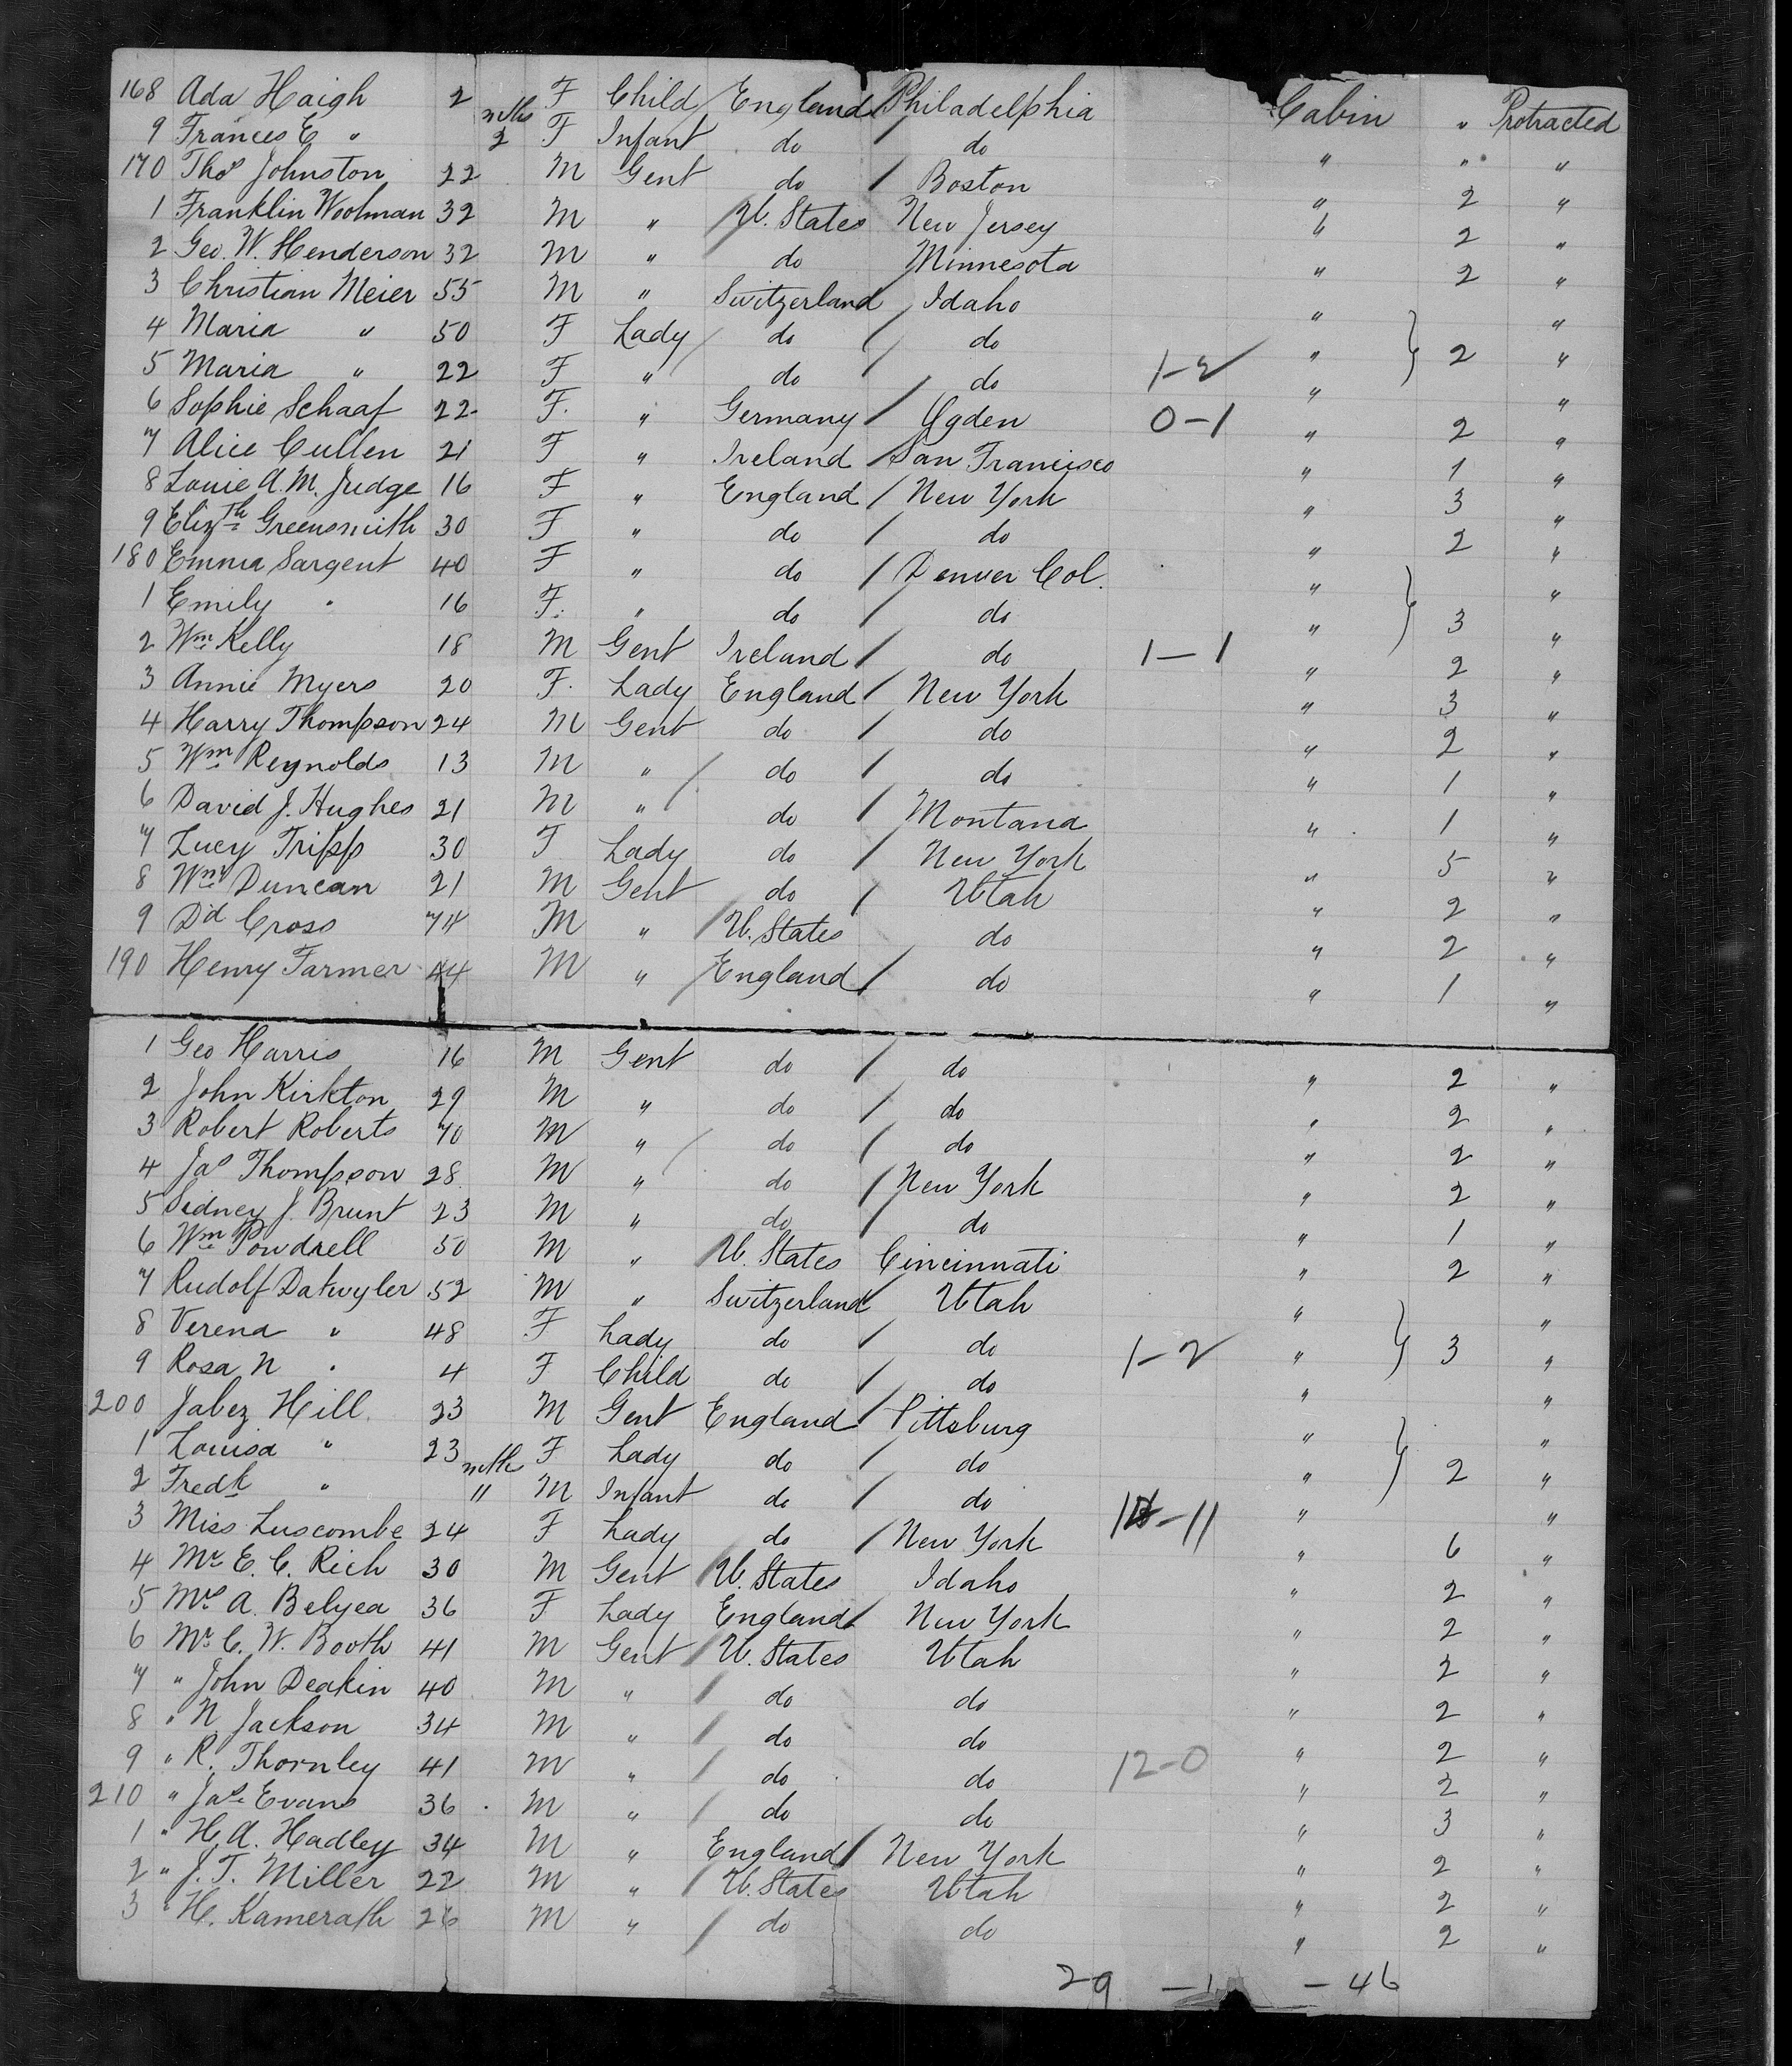 168 Ada Haigh 2 F Child England Philadelphia Cabin " Protracted
9 Frances E " mths 2 F Infant do do " " "
170 Thos Johnston 22 M Gent do Boston " 2 "
1 Franklin Woolman 32 M " U. States New Jersey " 2 "
2 Geo. W. Henderson 32 M " do Minnesota " 2 "
3 Christian Meier 55 M " Switzerland Idaho " "
4 Maria " 50 F Lady do do " } 2 "
5 Maria " 22 F " do do 1-2 " "
6 Sophie Schaaf 22 F. " Germany Ogden 0-1 " 2 "
7 Alice Cullen 21 F " Ireland San Francisco " 1 "
8 Louie A. M. Judge 16 F " England New York " 3 "
9 Elizth Greensmith 30 F " do do " 2 "
180 Emma Sargent 40 F " do Denver Col. " "
1 Emily " 16 F. " do do " } 3 "
2 Wm Kelly 18 M Gent Ireland do 1-1 " 2 "
3 Annie Myers 20 F. Lady England New York " 3 "
4 Harry Thompson 24 M Gent do do " 2 "
5 Wm Reynolds 13 M " do do " 1 "
6 David J. Hughes 21 M " do Montana " 1 "
7 Lucy Tripp 30 F Lady do New York " 5 "
8 Wm Duncan 21 M Gent do Utah " 2 "
9 Dd Cross 74 M " U. States do " 2 "
190 Henry Farmer 44 M " England do " 1 "
1 Geo Harris 16 M Gent do do " 2 "
2 John Kirkton 29 M " do do " 2 "
3 Robert Roberts 70 M " do do " 2 "
4 Jas Thompson 28 M " do New York " 2 "
5 Sidney J. Brunt 23 M " do do " 1 "
6 Wm Powdrell 50 M " U. States Cincinnati " 2 "
7 Rudolf Datwyler 52 M " Switzerland Utah " "
8 Verena " 48 F Lady do do 1-2 " } 3 "
9 Rosa N " 4 F Child do do " "
200 Jabez Hill 23 M Gent England Pittsburg " "
1 Louisa " 23 F Lady do do " } 2 "
2 Fredk " mths 11 M Infant do do " "
3 Miss Luscombe 24 F Lady do New York -11 " 6 "
4 Mr E. C. Rich 30 M Gent U. States Idaho " 2 "
5 Mrs A. Belyea 36 F Lady England New York " 2 "
6 Mr C. W. Booth 41 M Gent U. States Utah " 2 "
7 " John Deakin 40 M " do do " 2 "
8 " N. Jackson 34 M " do do " 2 "
9 " R. Thornley 41 M " do do 12-0 " 2 "
210 " Jas Evans 36 M " do do " 3 "
1 " H. A. Hadley 34 M " England New York " 2 "
2 " J. T. Miller 22 M " U. States Utah " 2 "
3 " H. Kamerath 26 M " do do " 2 "
29 - 1 - 46